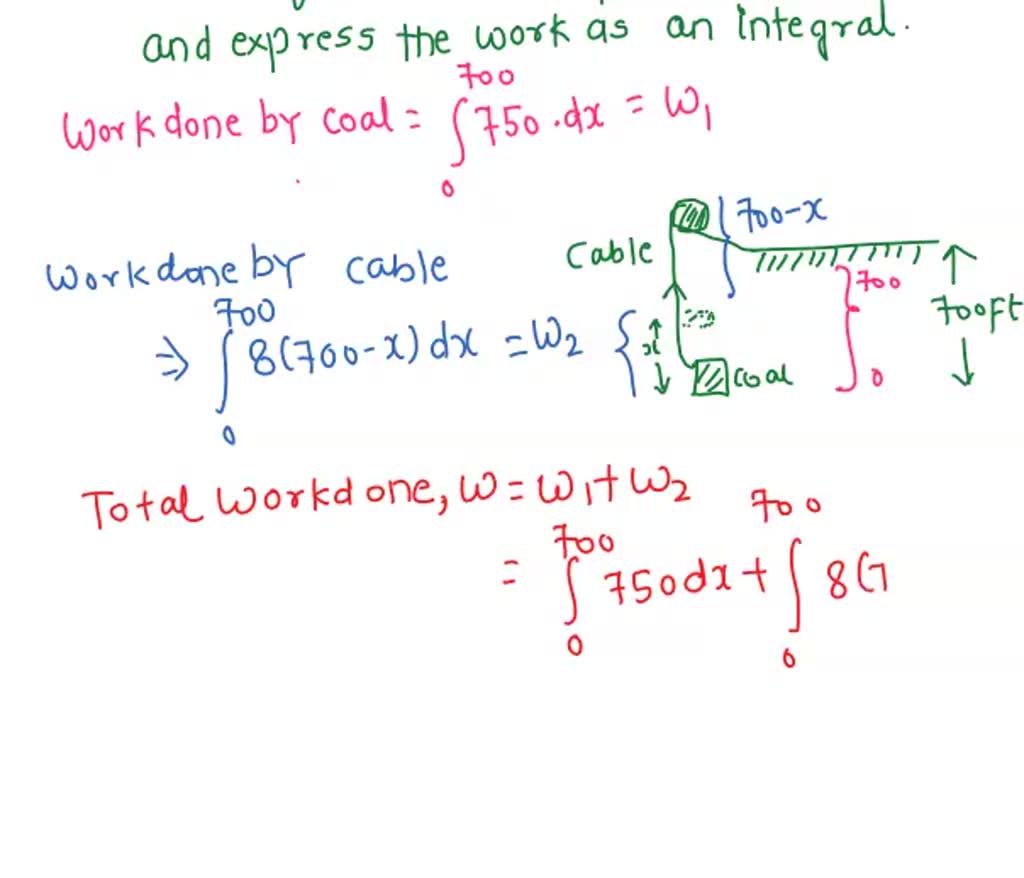 and express the work as an integral.
Work done by coal = ∫₀⁷⁰⁰ 750 · dx = W₁
Work done by cable
⇒ ∫₀⁷⁰⁰ 8(700-x) dx = W₂
Cable
700-x
700
700 Ft
x
coal
0
Total Work done, W = W₁ + W₂
= ∫₀⁷⁰⁰ 750 dx + ∫₀⁷⁰⁰ 8(7